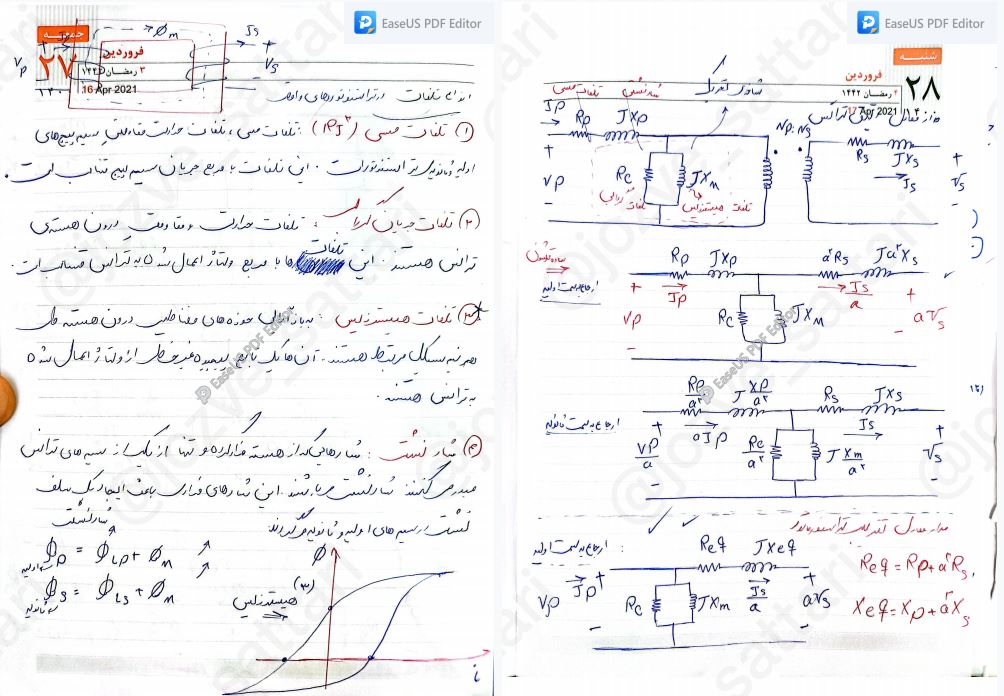 EaseUS PDF Editor
جمعه
۲۷
فروردین
۳ رمضان ۱۴۴۲
16 Apr 2021
→ Φm
Ip
Is
Vp
+
−
Vs
انواع تلفات در ترانسفورماتورهای واقعی
۱) تلفات مسی (RI²) : تلفات مسی، تلفات حرارت مقاومتی سیم پیچ‌های
اولیه و ثانویه‌ی ترانسفورماتور است. این تلفات با مربع جریان سیم پیچ متناسب است.
۲) تلفات جریان گردابی : تلفات حرارت و مقاومت درون هسته‌ی
ترانس هستند. این تلفات ها با مربع ولتاژ اعمال شده به ترانس متناسب است.
۳) تلفات هیسترزیس : با حوزه های مغناطیسی درون هسته طی
هر نیم سیکل مرتبط هستند. آن ها یک تابع پیچیده غیرخطی از ولتاژ اعمال شده
به ترانس هستند.
۴) شار نشت : شارهایی که از هسته فرار کرده و تنها از یکی از سیم های ترانس
عبور می کنند شار نشت می باشند. این شارهای فراری باعث ایجاد یک سلف
نشت در سیم های اولیه و ثانویه می گردند.
شار نشت
Φp = ΦLp + Φm
اولیه
Φs = ΦLs + Φm
ثانویه
Φ
(۳) هیسترزیس
i
EaseUS PDF Editor
شنبه
۲۸
فروردین
۴ رمضان ۱۴۴۲
17 Apr 2021
مدار معادل ترانس
تلفات مسی
Ip
Rp
JXp
Np:Ns
Rs
JXs
Is
+
Vp
−
Rc
JXm
+
Vs
−
تلفات گردابی
تلفات هیسترزیس
ارجاع به سمت اولیه
Rp
JXp
a²Rs
Ja²Xs
Ip
Is/a
+
Vp
−
Rc
JXm
+
aVs
−
ارجاع به سمت ثانویه
Rp/a²
J Xp/a²
Rs
JXs
aIp
Is
+
Vp/a
−
Rc/a²
J Xm/a²
+
Vs
−
ارجاع به سمت اولیه :
Req
JXeq
Ip
Is/a
+
Vp
−
Rc
JXm
+
aVs
−
Req = Rp + a²Rs
Xeq = Xp + a²Xs